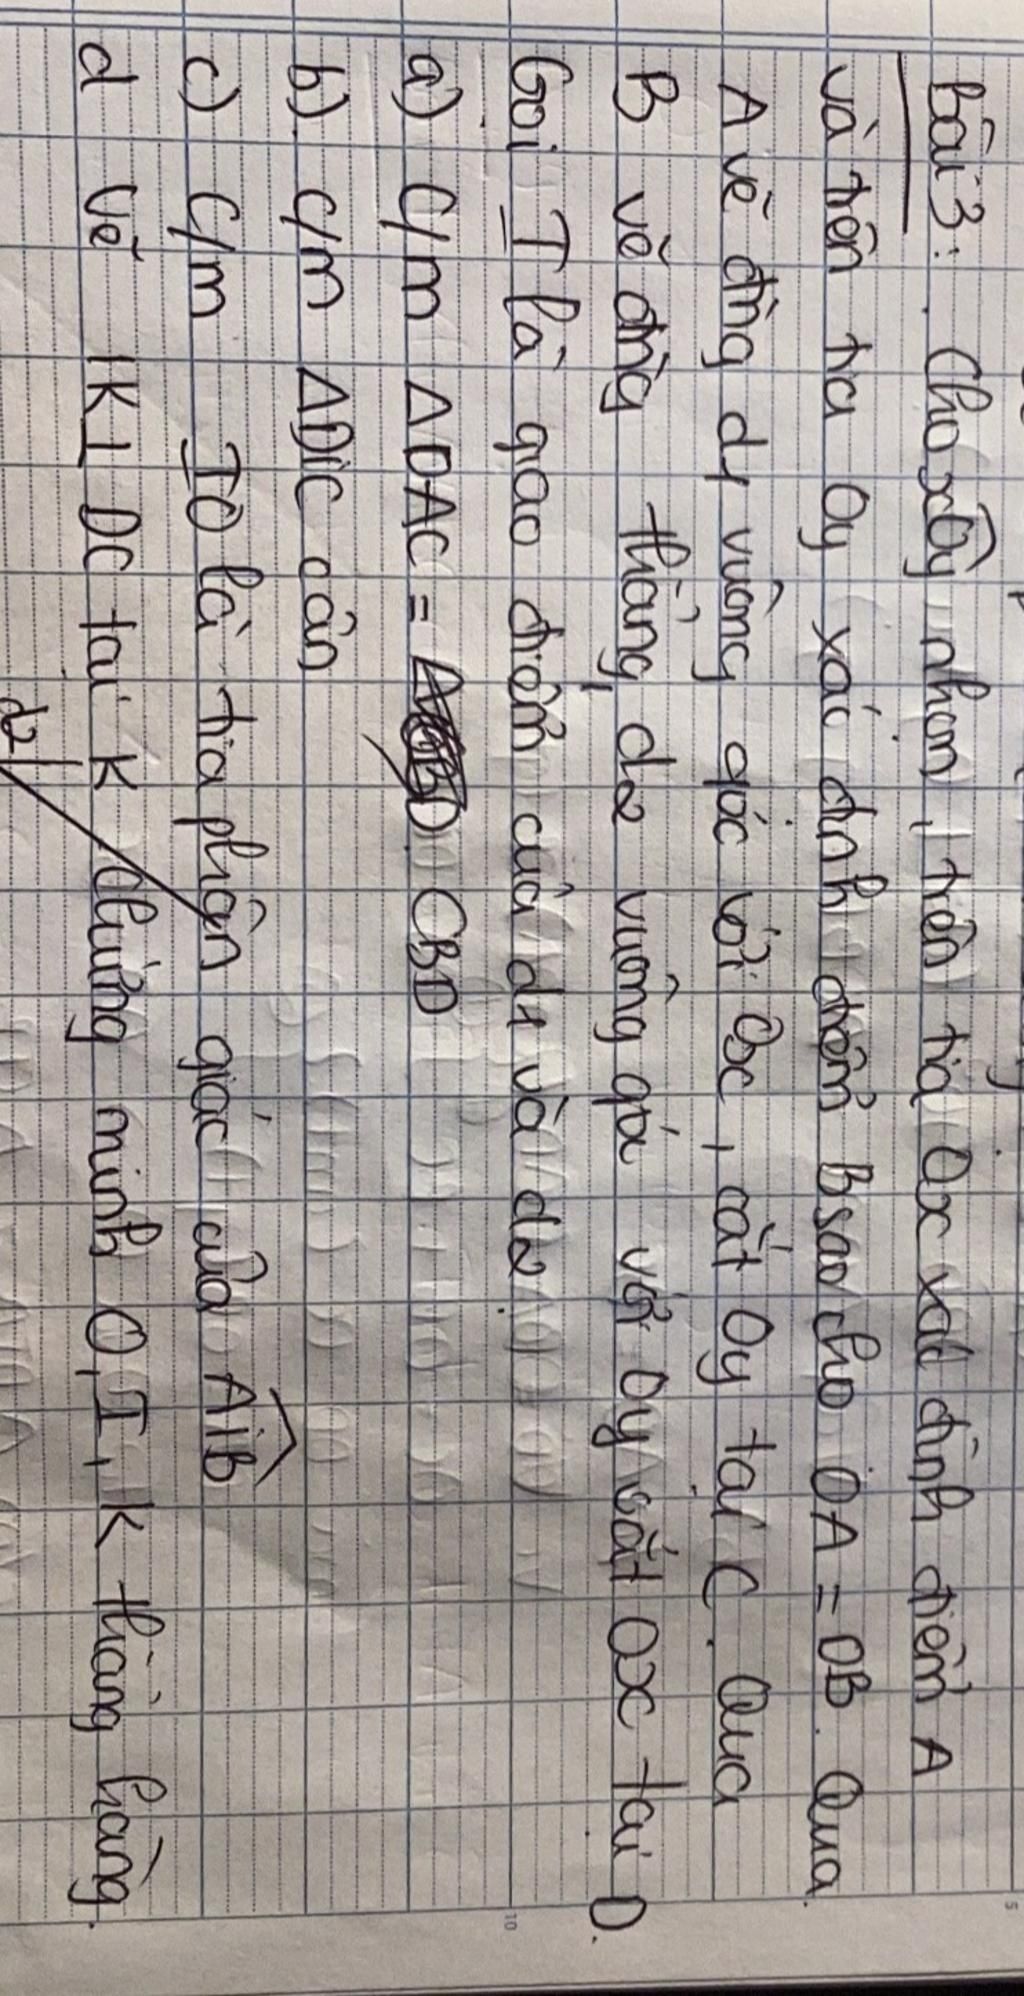 Bài 3: Cho xÔy nhọn, trên tia Ox xác định điểm A
và trên tia Oy xác định điểm B sao cho OA = OB. Qua
A vẽ đng d1 vuông góc với Ox, cắt Oy tại C. Qua
B vẽ đng thẳng d2 vuông gó với Oy cắt Ox tại D.
Gọi I là giao điểm của d1 và d2.
a) C/m ΔOAC = CBD
b) C/m ΔDIC cân
c) C/m IO là tia phân giác của AIB
d Vẽ IK⊥ DC tại K. Chứng minh O, I, K thẳng hàng.
d2